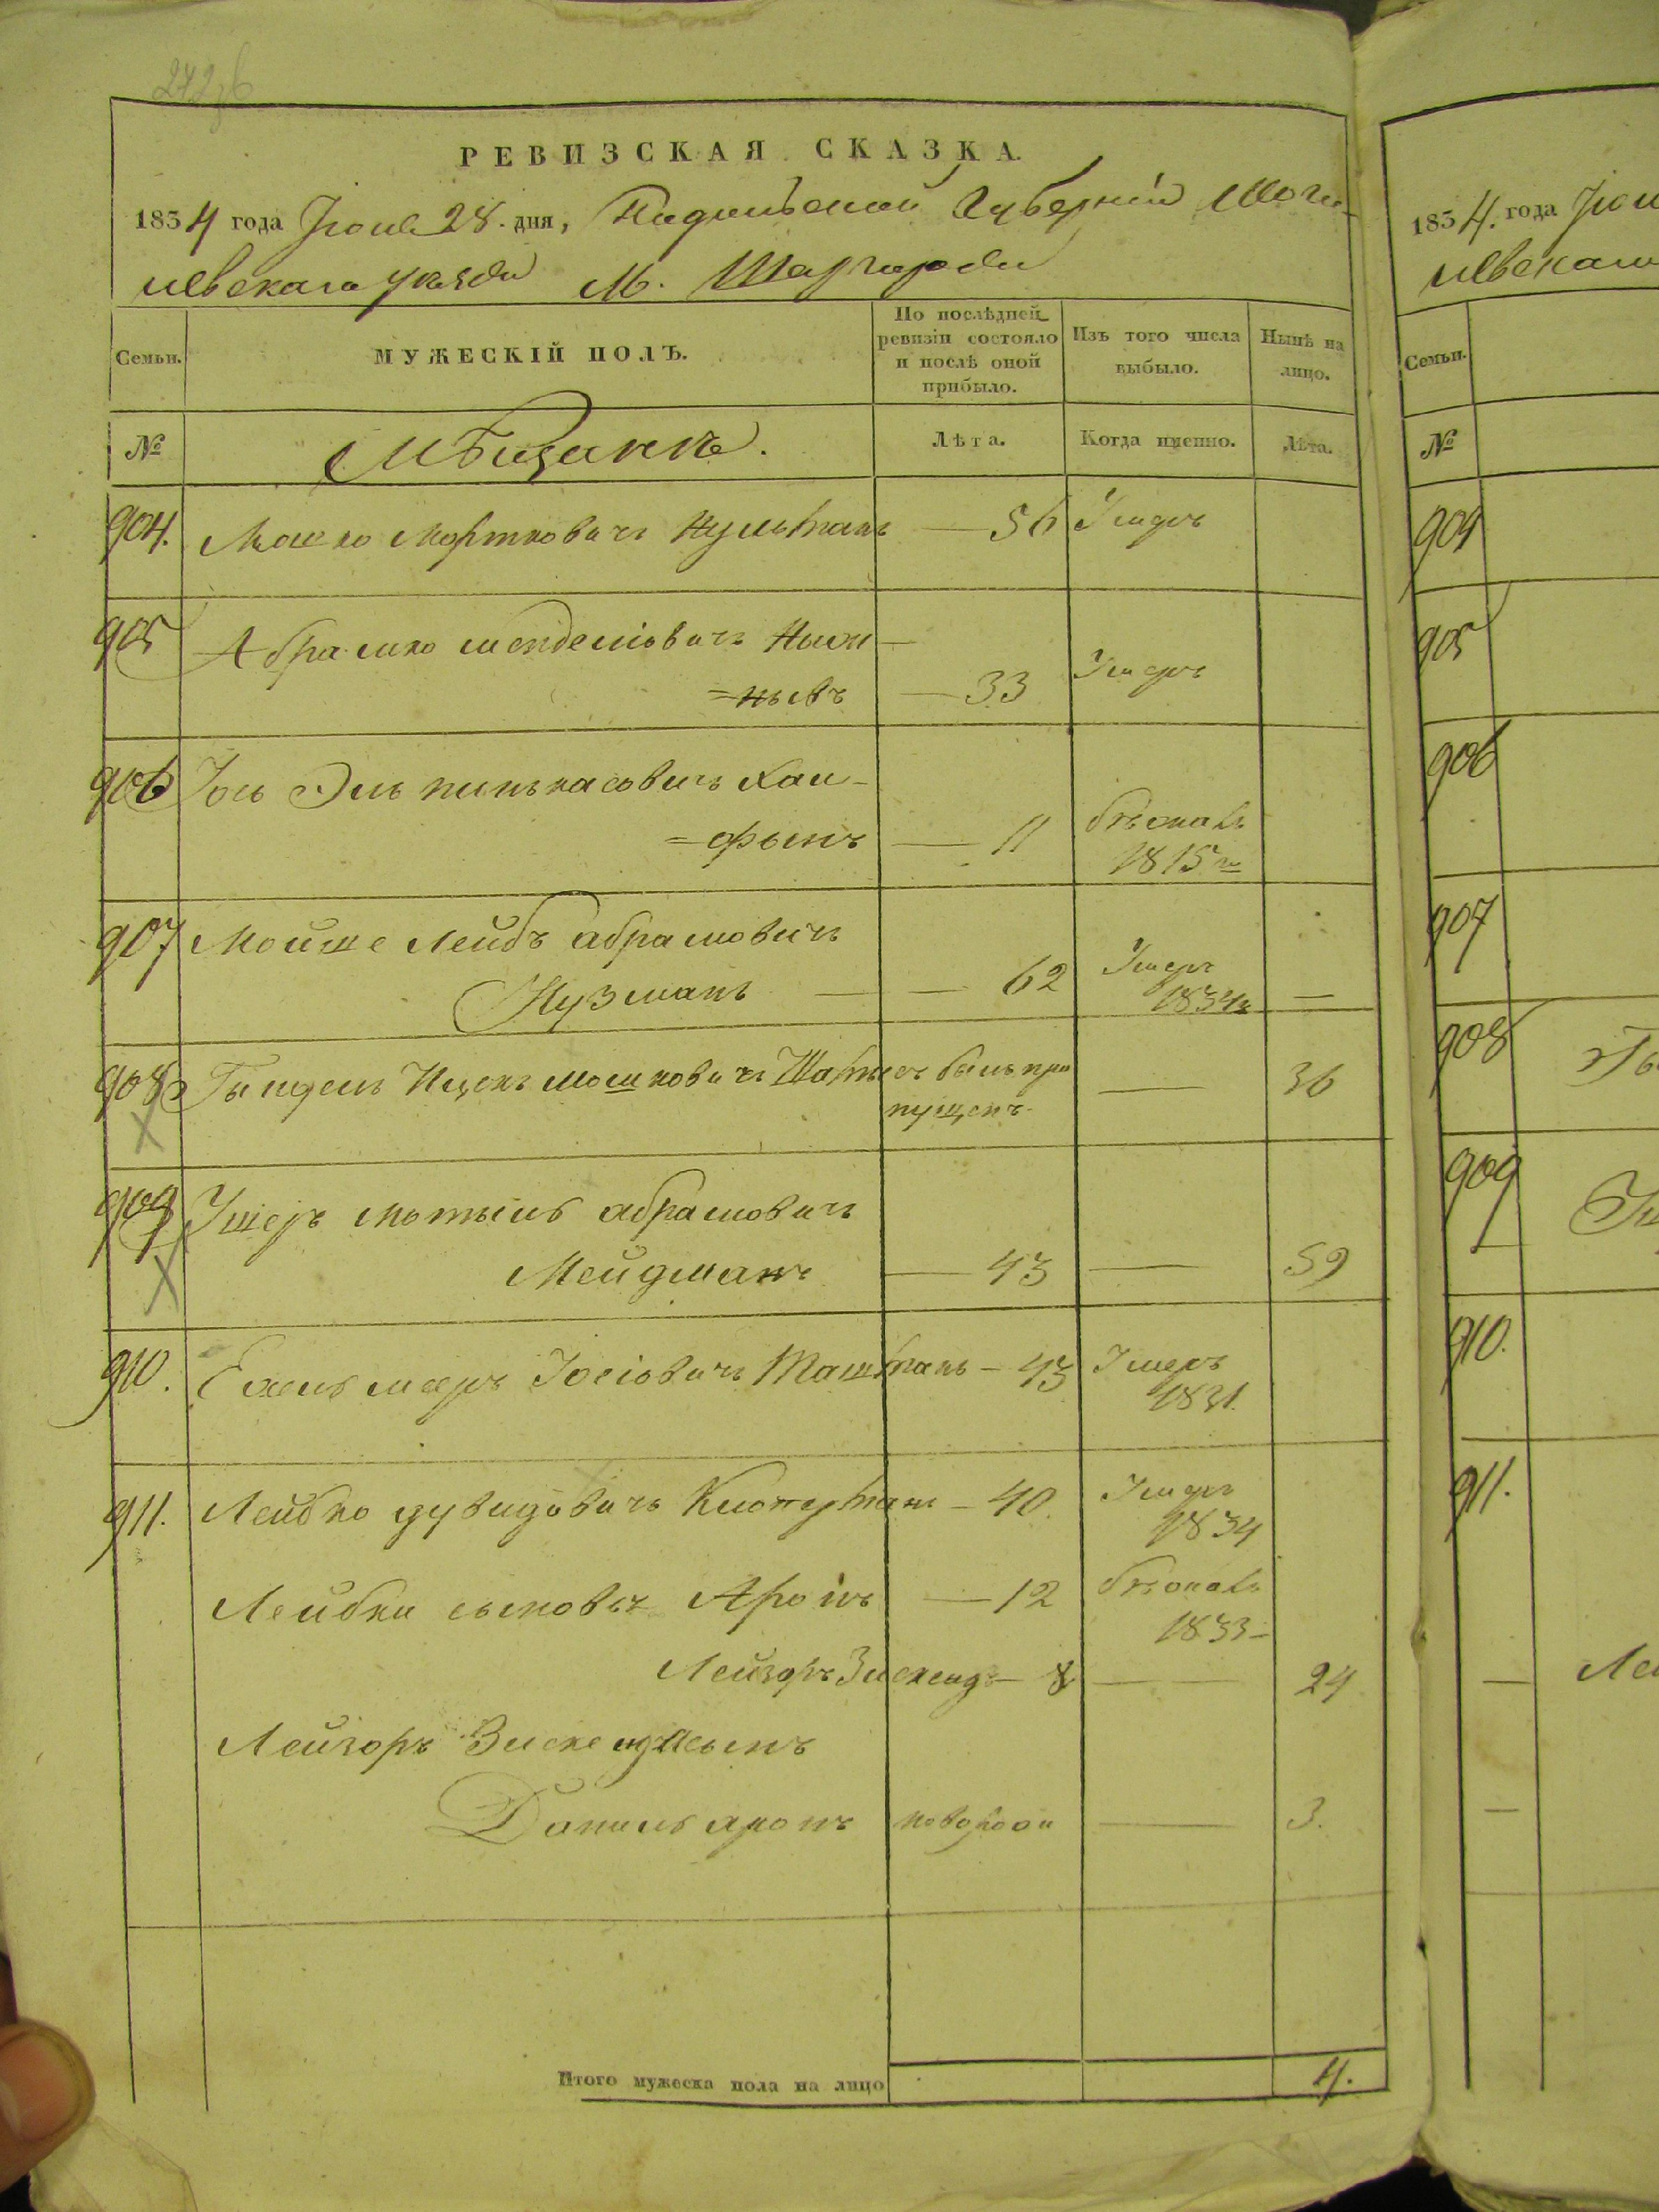 272об
РЕВИЗСКАЯ СКАЗКА.
1854 года Іюня 28. дня, Подольской Губерніи Моги-
левскаго уѣзда М. Шаргорода
Семьи.
МУЖЕСКІЙ ПОЛЪ.
По послѣдней ревизіи состояло и послѣ оной прибыло.
Изъ того числа выбыло.
Нынѣ на лицо.
№
Мѣщанъ.
Лѣта.
Когда именно.
Лѣта.
904. Мошко Мортковичъ — 56 Умеръ
905 Абрамко Менделіовичъ
— 33 Умеръ
906 Іось Эль Пинькасовичъ Хаи-
=фынъ — 11 бѣжалъ
1815 го
907 Мойше Лейбъ Абрамовичъ
Нузманъ — — 62 Умеръ
1834 —
908 Іцекъ Мошковичъ былъ про
пущенъ — 36
909 Ушеръ Мотыль Абрамовичъ
Мейдманъ — 43 — 59
910. Іосіовичъ — 43 Умеръ
1831.
911. Лейбко Дувидовичъ — 40. Умеръ
1834
Лейбки сыновья Аронъ — 12 бѣжалъ
1833 —
Лейзоръ Зисkeндъ — 8 — 24
Лейзоръ Зискенда сынъ
Данель Аронъ новорож — 3.
Итого мужеска пола на лицо 4.
1854. года Іюн
левскаго
Семьи.
№
904
905
906
907
908
909
910.
911.
— Ле
—